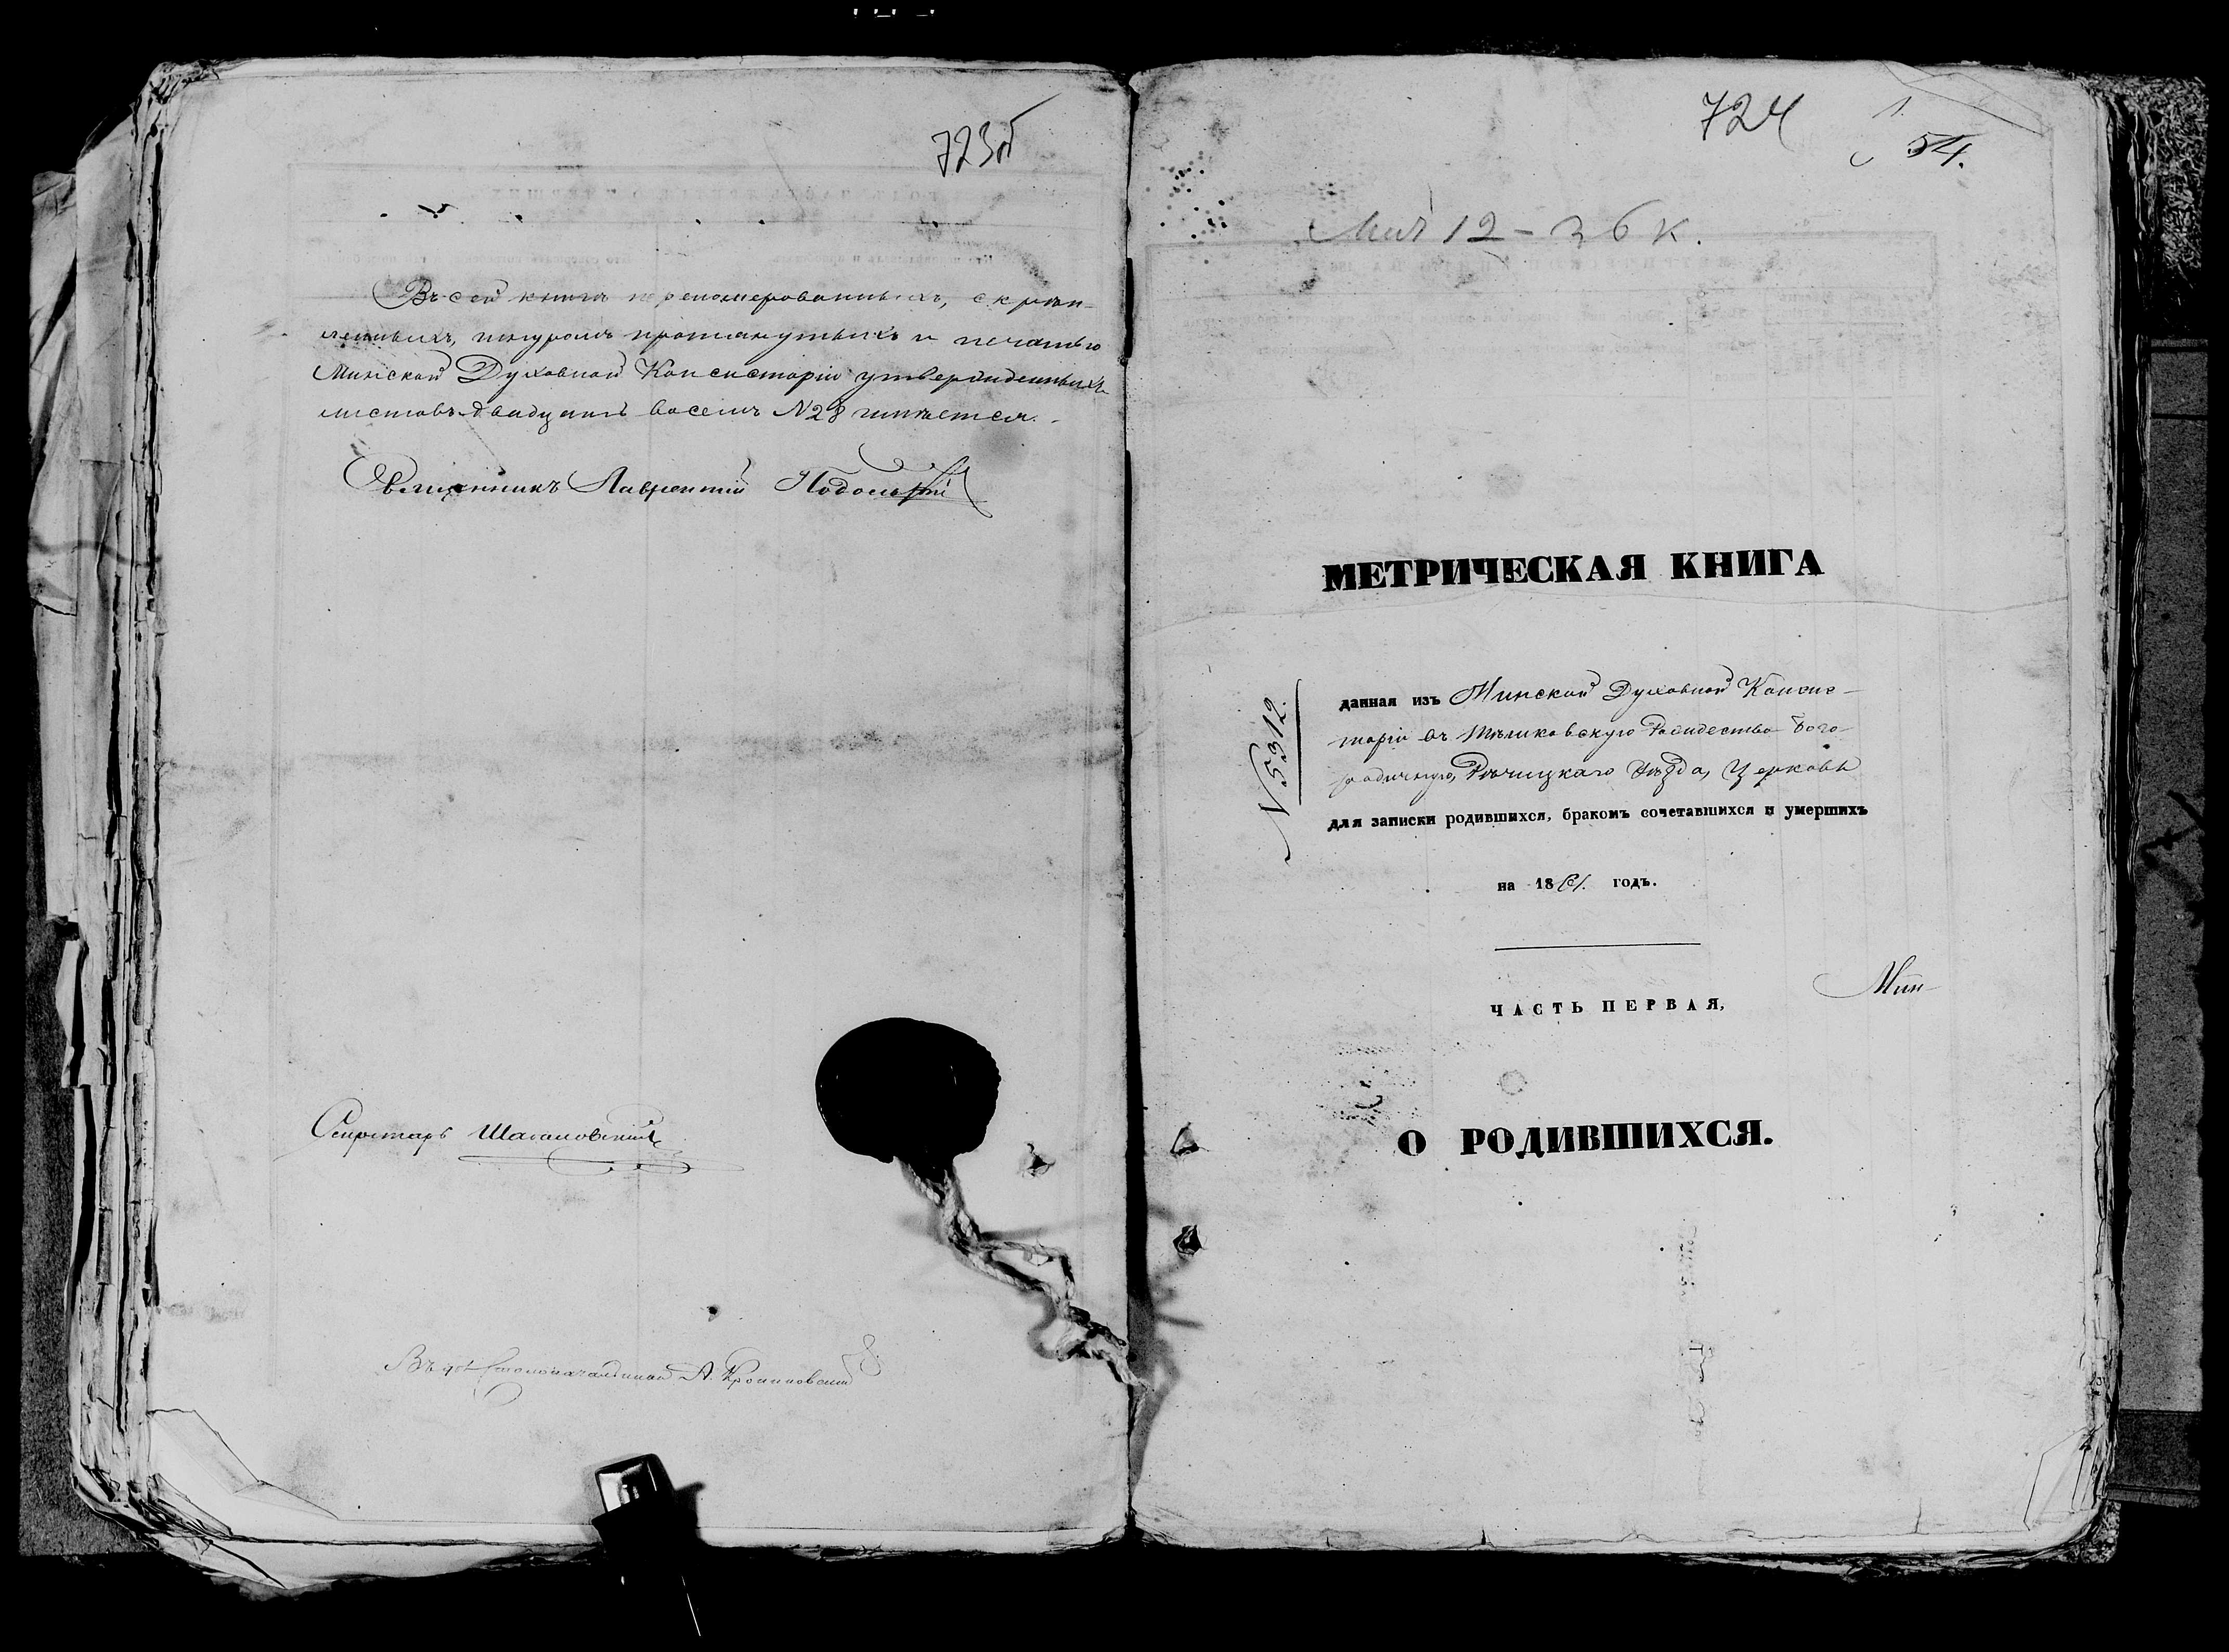 723об
Въ сей книгѣ перенумерованныхъ, скрѣп-
ленныхъ, шнуромъ протянутыхъ и печатью
Минской Духовной Консисторіи утвержденныхъ
листовъ двадцать восемь №28 имѣется.
Священникъ Лаврентій Подольскій
Секретарь
Въ д. Столоначальника А.
724
1.
54.
12 – 36 к.
МЕТРИЧЕСКАЯ КНИГА
№5312.
данная изъ Минской Духовной Консис-
торіи въ Рождество Бого-
родичную, Рѣчицкаго Уѣзда, Церковь
для записки родившихся, бракомъ сочетавшихся и умершихъ
на 1861. годъ.
Мин-
ЧАСТЬ ПЕРВАЯ,
О РОДИВШИХСЯ.